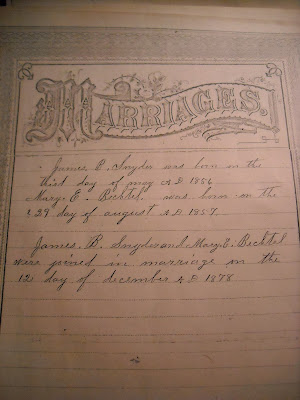 MARRIAGES.
James B. Snyder was born in the
third day of may A D 1856
Mary E. Bechtel was born on the
29 day of august A.D. 1857.
James. B. Snyder and Mary. E. Bechtel
were joined in marriage on the
12 day of december A D 1878